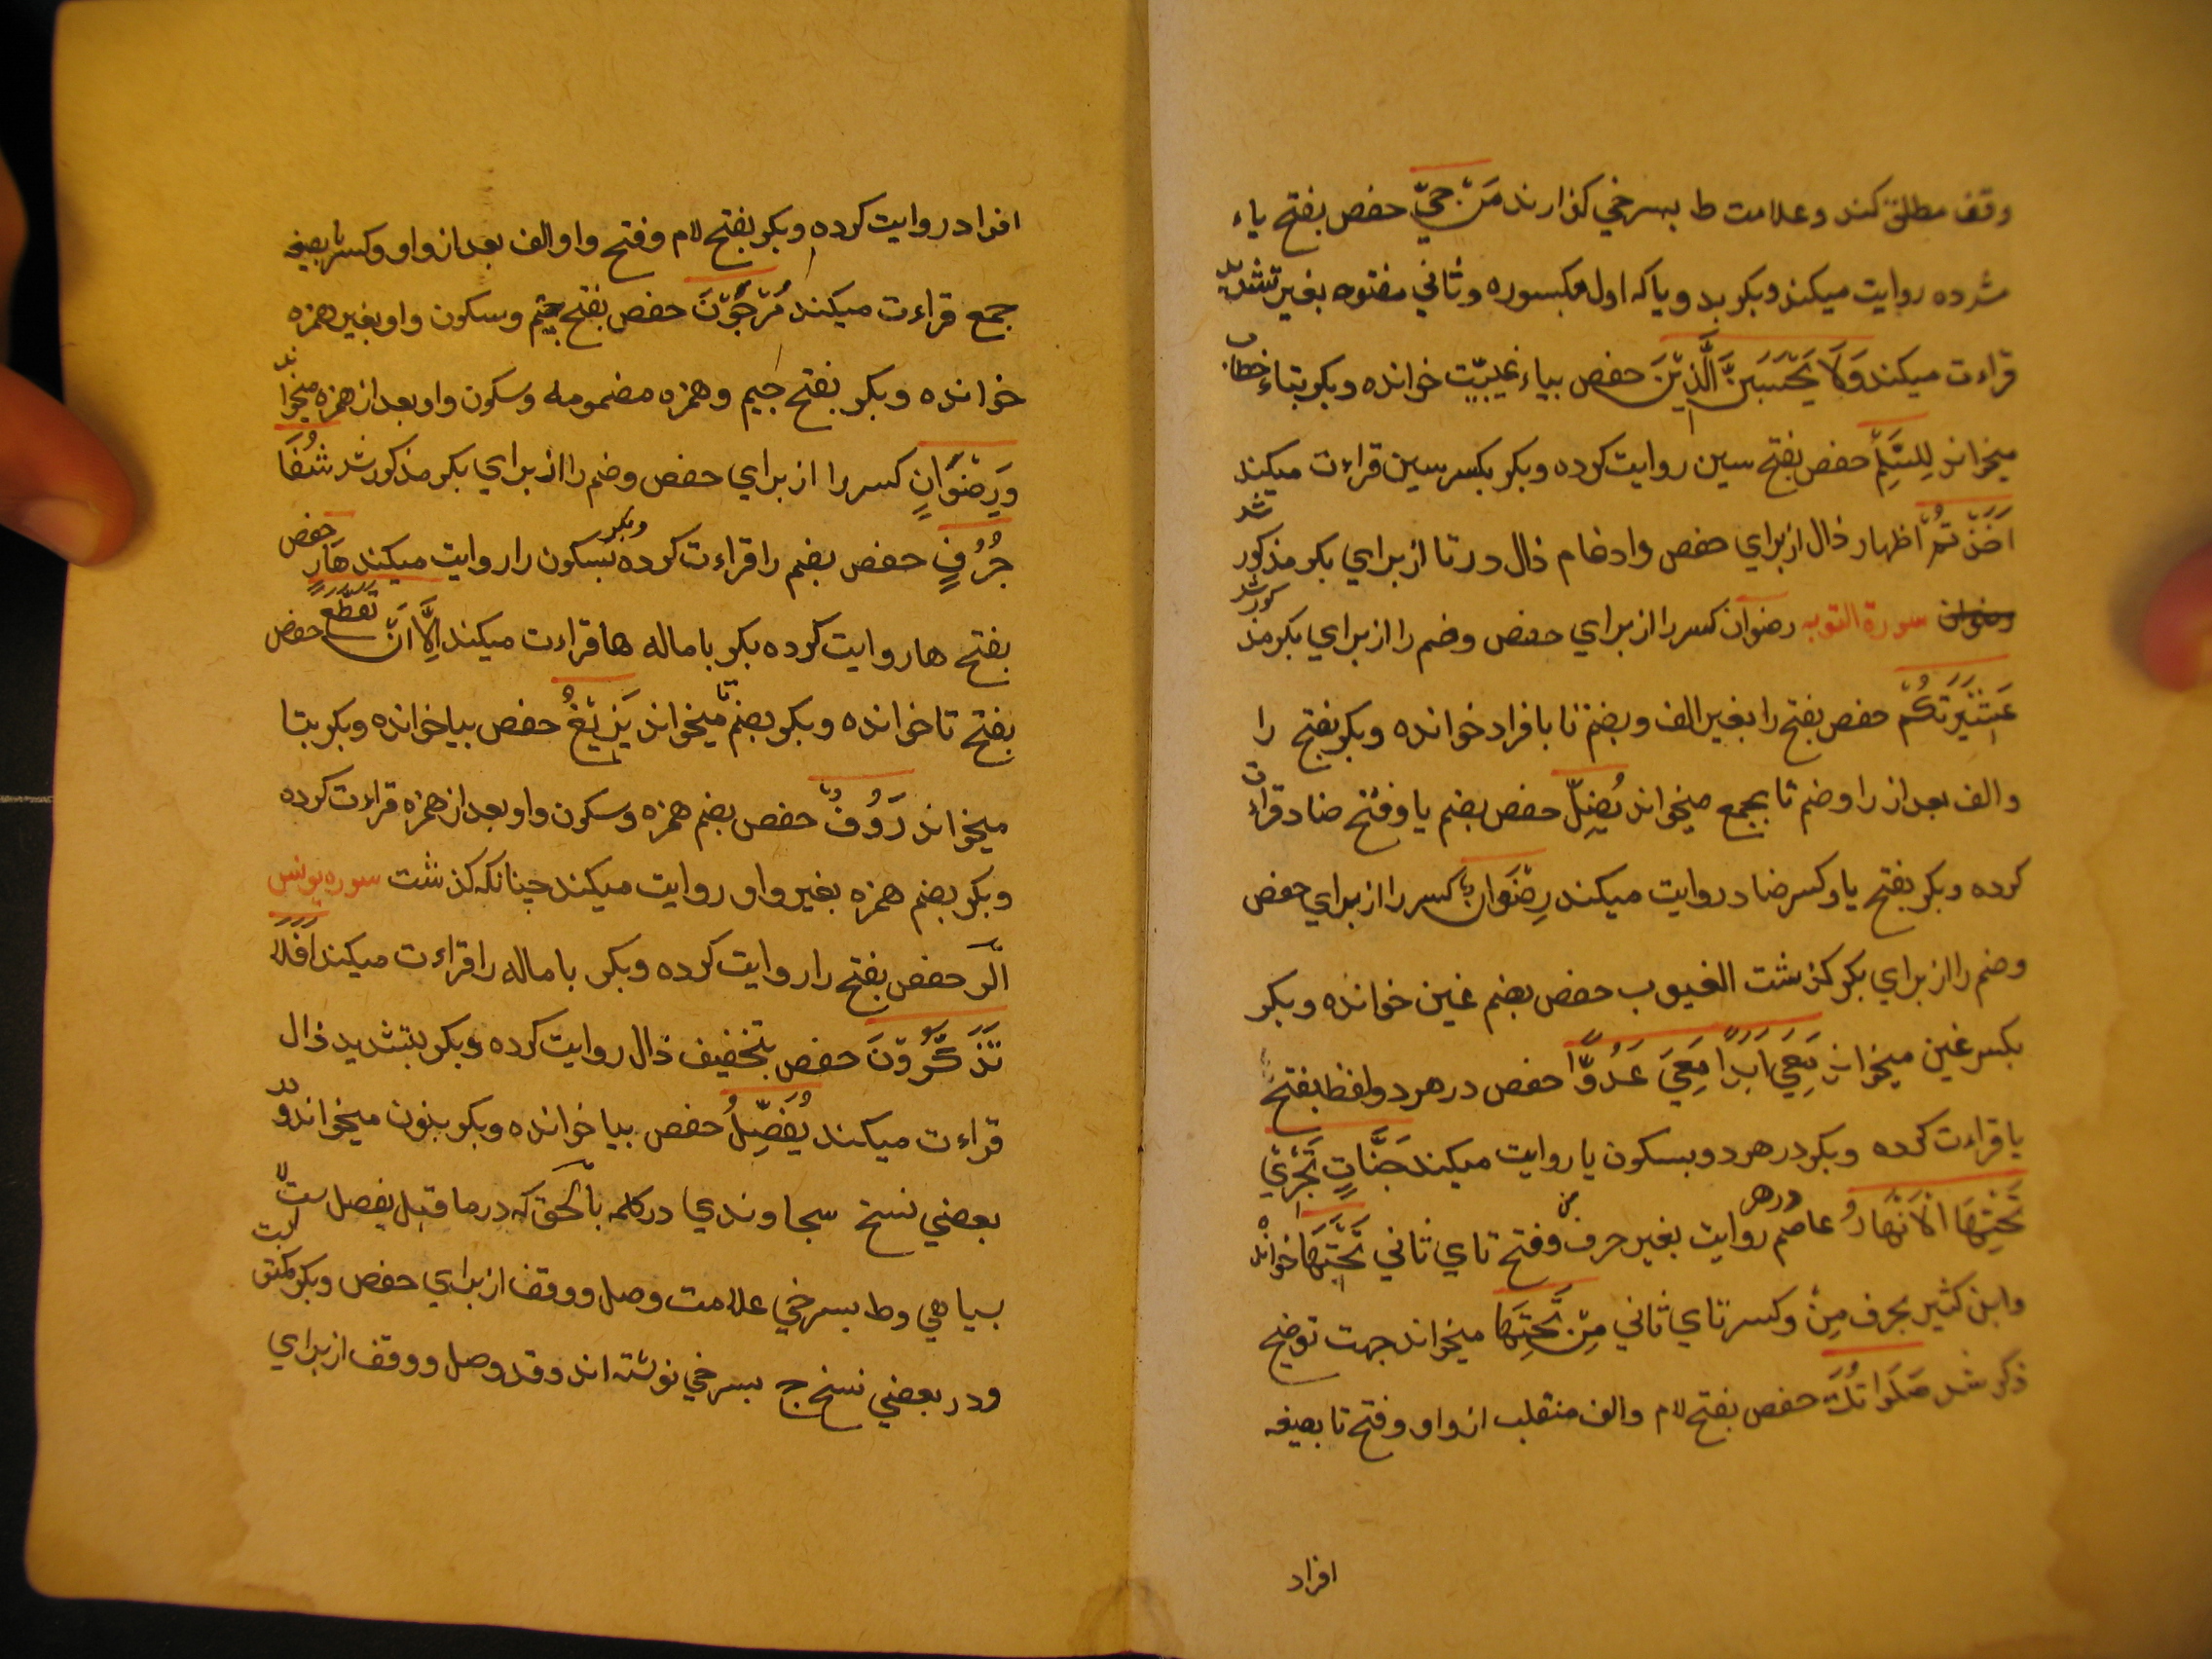 وقف مطلق کنند وعلامت ط بسرخي کذارند مَنْ حَيَّ حفص بفتح ياء
مشدده روايت ميکند وبکر بدو ياکه اول مکسوره وثاني مفتوحه بغير تشديد
قراءت ميکند وَلَا يَحْسَبَنَّ الَّذِيْنَ حفص بياء غيبت خوانده وبکر بتاء خطاب
ميخواند لِلسَّلْمِ حفص بفتح سين روايت کرده وبکر بکسر سين قراءت ميکند
اَخَذْتُمْ اظهار ذال از براي حفص وادغام ذال در تا از براي بکر مذکور شد
رضوان سورة التوبه رضوان کسر را از براي حفص وضم را از براي بکر مذکور شد
عَشِيْرَتُكُمْ حفص بفتح را بغير الف وبضم تا بافراد خوانده وبکر بفتح را
والف بعد از را وضم تا بجمع ميخواند يُضَلُّ حفص بضم يا وفتح ضاد قراءت
کرده وبکر بفتح يا وکسر ضاد روايت ميکند رِضْوَان کسر را از براي حفص
وضم را از براي بکر کذشت الغيوب حفص بضم غين خوانده وبکر
بکسر غين ميخواند مَعِيَ اَبَدًا مَعِيَ عَدُوًّا حفص در هر دو لفظ بفتح
يا قراءت کرده وبکر در هر دو بسکون يا روايت ميکند جَنَّاتٍ تَجْرِيْ
تَحْتَهَا الْاَنْهَارُ عاصم در هر روايت بغير حرف من وفتح تاي ثاني تَحْتَهَا خوانده
وابن کثير بحرف مِنْ وکسر تاي ثاني مِنْ تَحْتِهَا ميخواند جهت توضيح
ذکر شد صَلَوَاتَكَ حفص بفتح لام والف منقلب از واو وفتح تا بصيغه
افراد
افراد روايت کرده وبکر بفتح لام وفتح واو والف بعد از واو وکسر تا بصيغه
جمع قراءت ميکند مُرْجَوْنَ حفص بفتح جيم وسکون واو بغير همزه
خوانده وبکر بفتح جيم وهمزه مضمومه وسکون واو بعد از همزه ميخواند
وَرِضْوَانٍ کسر را از براي حفص وضم را از براي بکر مذکور شد شَفَا
جُرُفٍ حفص بضم را قراءت کرده وبکر بسکون را روايت ميکند هَارٍ حفص
بفتح ها روايت کرده بکر باماله ها قراءت ميکند اِلَّا اَنْ تَقَطَّعَ حفص
بفتح تا خوانده وبکر بضم تا ميخواند يَزِيْغُ حفص بيا خوانده وبکر بتا
ميخواند رَؤُفٌ حفص بضم همزه وسکون واو بعد از همزه قراءت کرده
وبکر بضم همزه بغير واو روايت ميکند چنانکه کذشت سوره يونس
الٓر حفص بفتح را روايت کرده وبکر باماله را قراءت ميکند اَفَلَا
تَذَكَّرُوْنَ حفص بتخفيف ذال روايت کرده وبکر بتشديد ذال
قراءت ميکند يُفَصِّلُ حفص بيا خوانده وبکر بنون ميخواند ودر
بعضي نسخ سجاوندي در کلمه بالحق که در ما قبل يفصل ست لا
بسياهي وط بسرخي علامت وصل ووقف از براي حفص وبکر مکتوبست
ودر بعضي نسخ ج بسرخي نوشته اند وقد وصل ووقف از براي